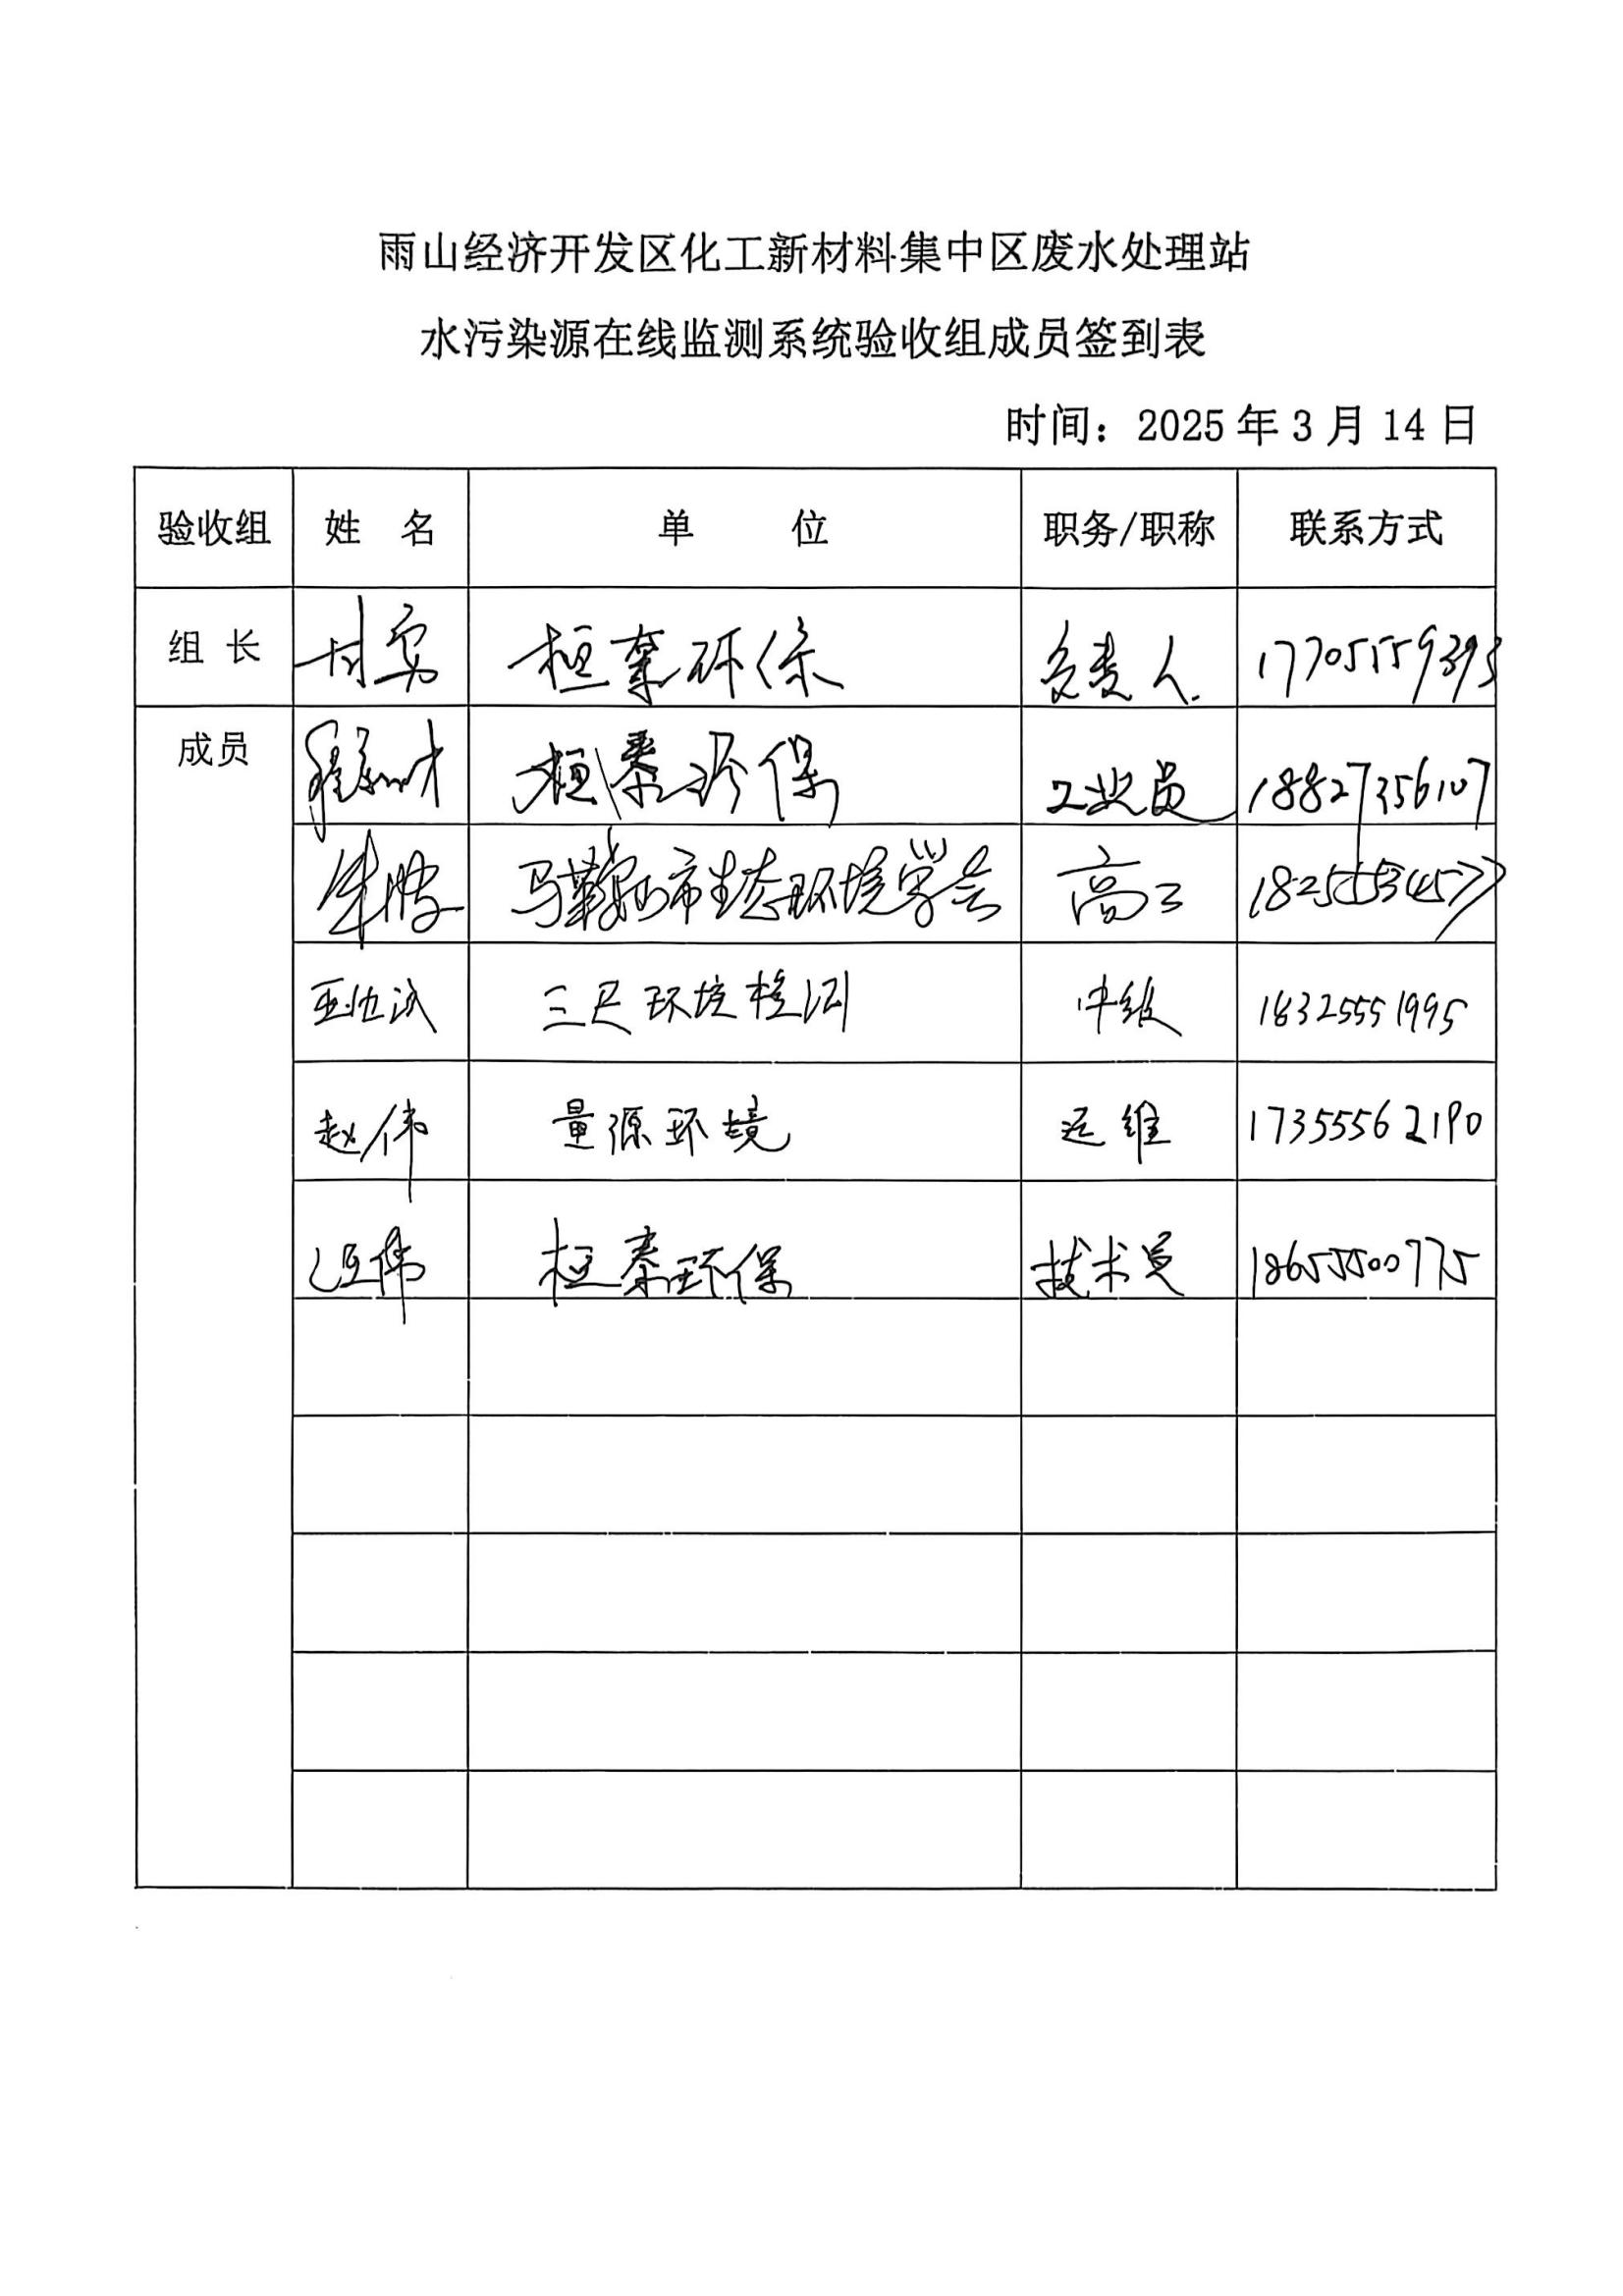 雨山经济开发区化工新材料集中区废水处理站
水污染源在线监测系统验收组成员签到表
时间：2025年3月14日
验收组 姓 名 单 位 职务/职称 联系方式
组 长 桓泰环保 负责人 17705559393
成员 桓泰环保 员 18827356107
朱 马鞍山市生态环境学会 高工
三尺环境检测 中级 18325551995
赵伟 量源环境 运维 17355562190
汪伟 桓泰环保 技术员 18655500775